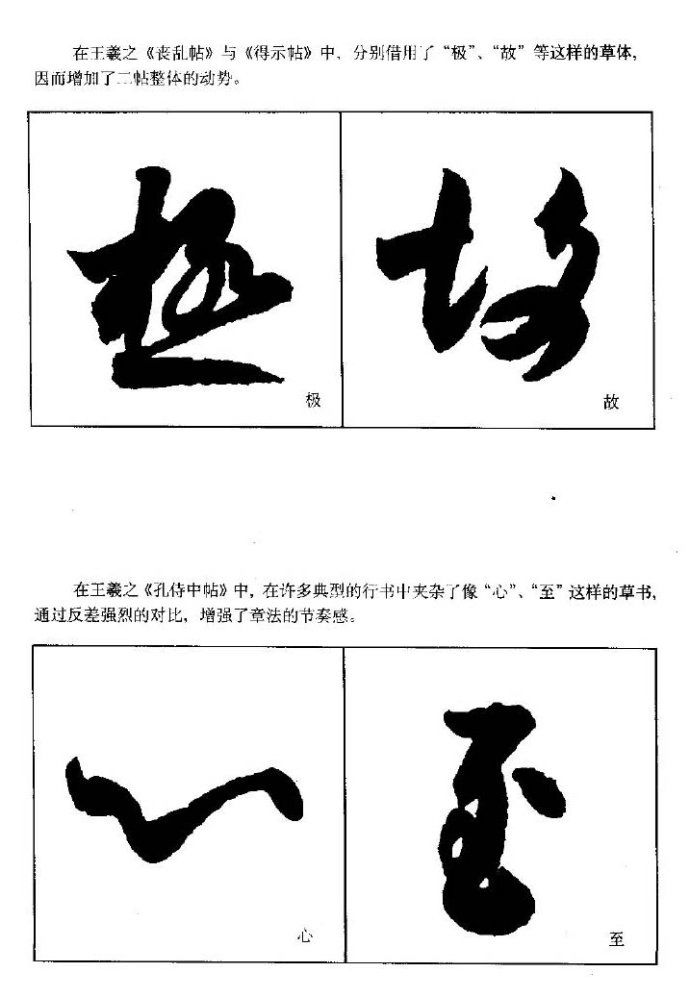 在王羲之《丧乱帖》与《得示帖》中，分别借用了“极”、“故”等这样的草体，
因而增加了二帖整体的动势。
极 故
极
故
在王羲之《孔侍中帖》中，在许多典型的行书中夹杂了像“心”、“至”这样的草书，
通过反差强烈的对比，增强了章法的节奏感。
心 至
心
至